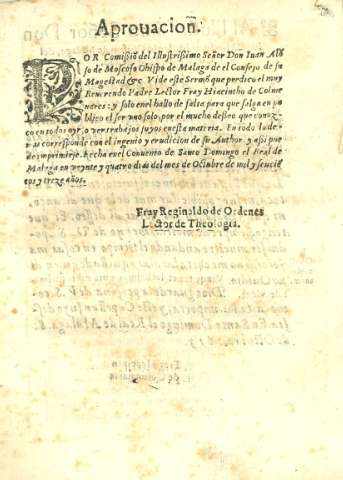 Aprouacion.
POR Comissiō del Illustrissimo Señor Don Iuan Alō
so de Moscoso Obispo de Malaga de el Consejo de su
Magestad &c. Vi de este Sermō que perdico el muy
Reuerendo Padre Lector Fray Hiacintho de Colme
nares: y solo en el hallo de falta para que salga en pu
blico el ser uno solo, por el mucho desseo que conoz-
co en todos oyr, o ver trabajos suyos en esta materia. En todo lo de
mas corresponde con el ingenio y erudicion de su Author, y assi pue
de imprimirse. Fecha en el Conuento de Santo Domingo el Real de
Malaga en veynte y quatro dias del mes de Octubre de mil y seuciē
tos y treze años.
Fray Reginaldo de Ordenes
Lector de Theologia.